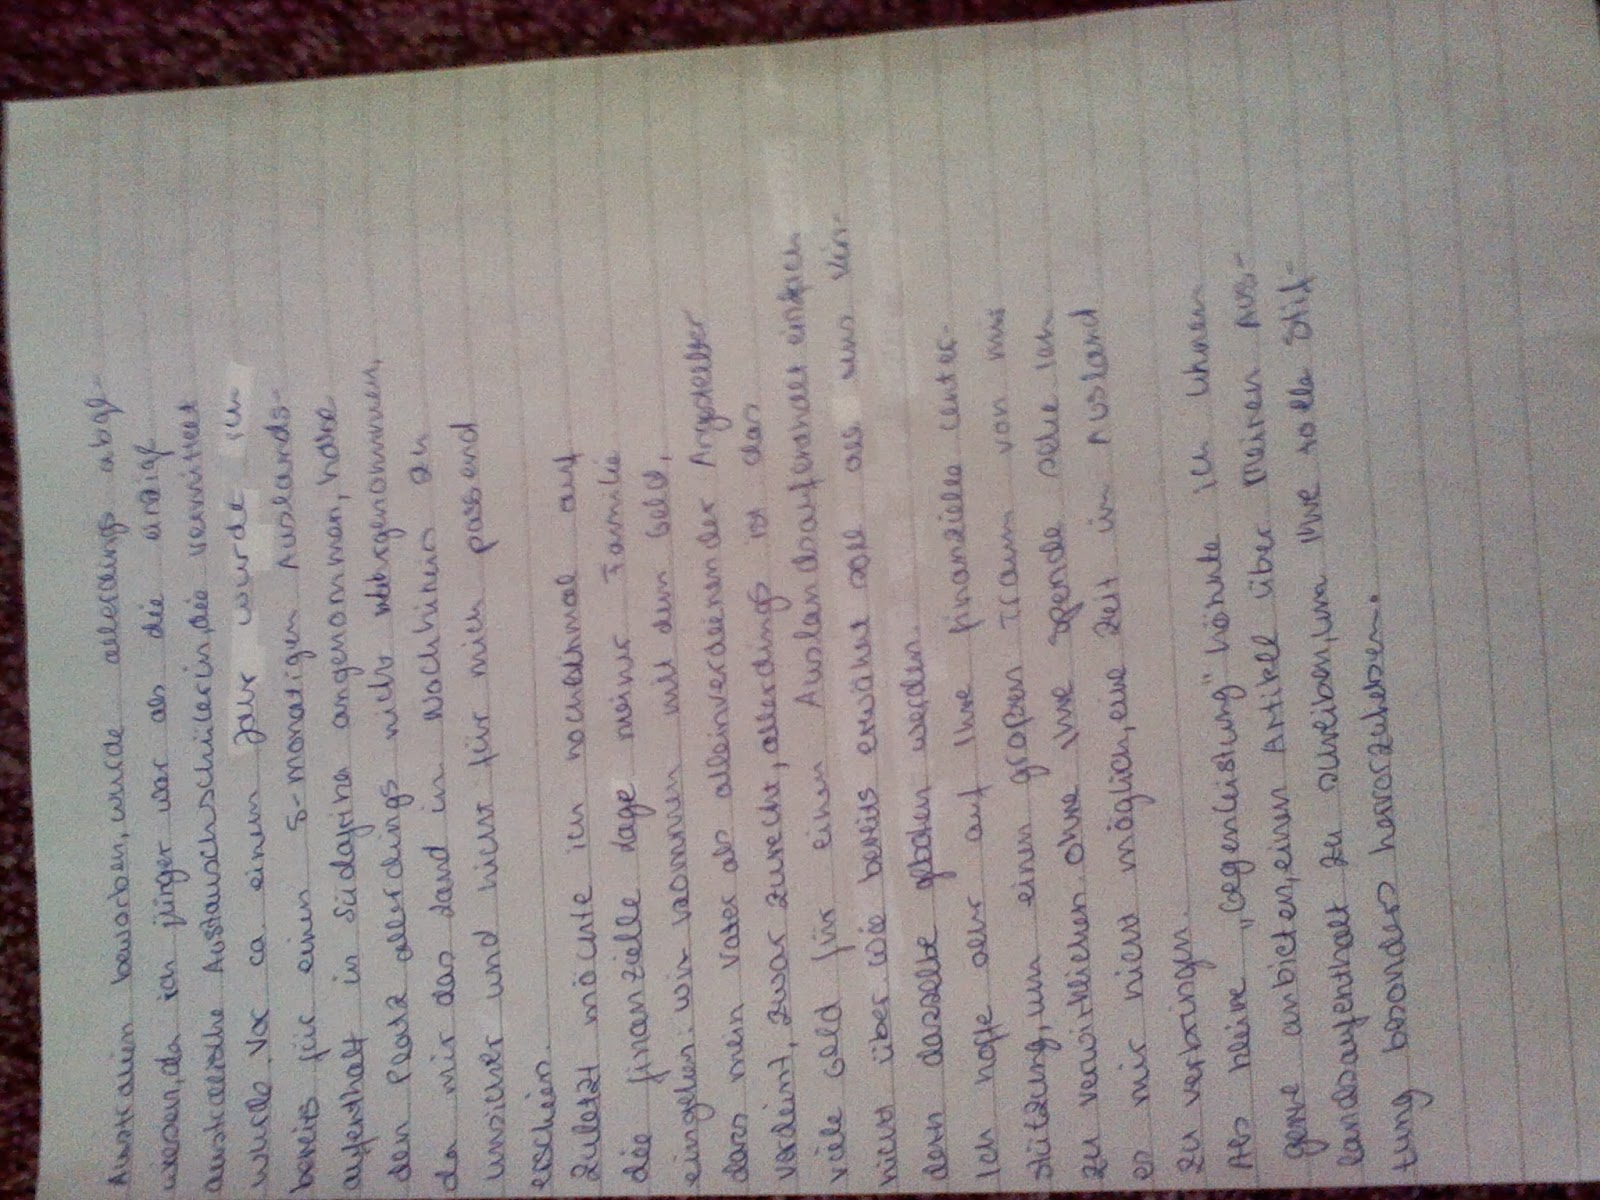 Australien beworben, wurde allerdings abge-
wiesen, da ich jünger war als die einzige
australische Austauschschülerin, die vermittelt
wurde. Vor ca einem Jahr wurde ich
bereits für einen 5-monatigen Auslands-
aufenthalt in Südafrika angenommen, habe
den Platz allerdings nicht wahrgenommen,
da mir das Land im Nachhinein zu
unsicher und nicht für mich passend
erschien.
Zuletzt möchte ich nocheinmal auf
die finanzielle Lage meiner Familie
eingehen: wir kommen mit dem Geld,
dass mein Vater als alleinverdienender Angestellter
verdient, zwar zurecht, allerdings ist das
viele Geld für einen Auslandsaufenthalt einfach
nicht über wie bereits erwähnt soll als uns Kin-
dern dasselbe geboten werden.
Ich hoffe sehr auf Ihre finanzielle Unter-
stützung, um einen großen Traum von mir
zu verwirklichen. Ohne Ihre Spende sehe ich
es mir nicht möglich, eine Zeit im Ausland
zu verbringen.
Als kleine „Gegenleistung" könnte ich Ihnen
gerne anbieten, einen Artikel über meinen Aus-
landsaufenthalt zu schreiben, um Ihre tolle Stif-
tung besonders hervorzuheben.